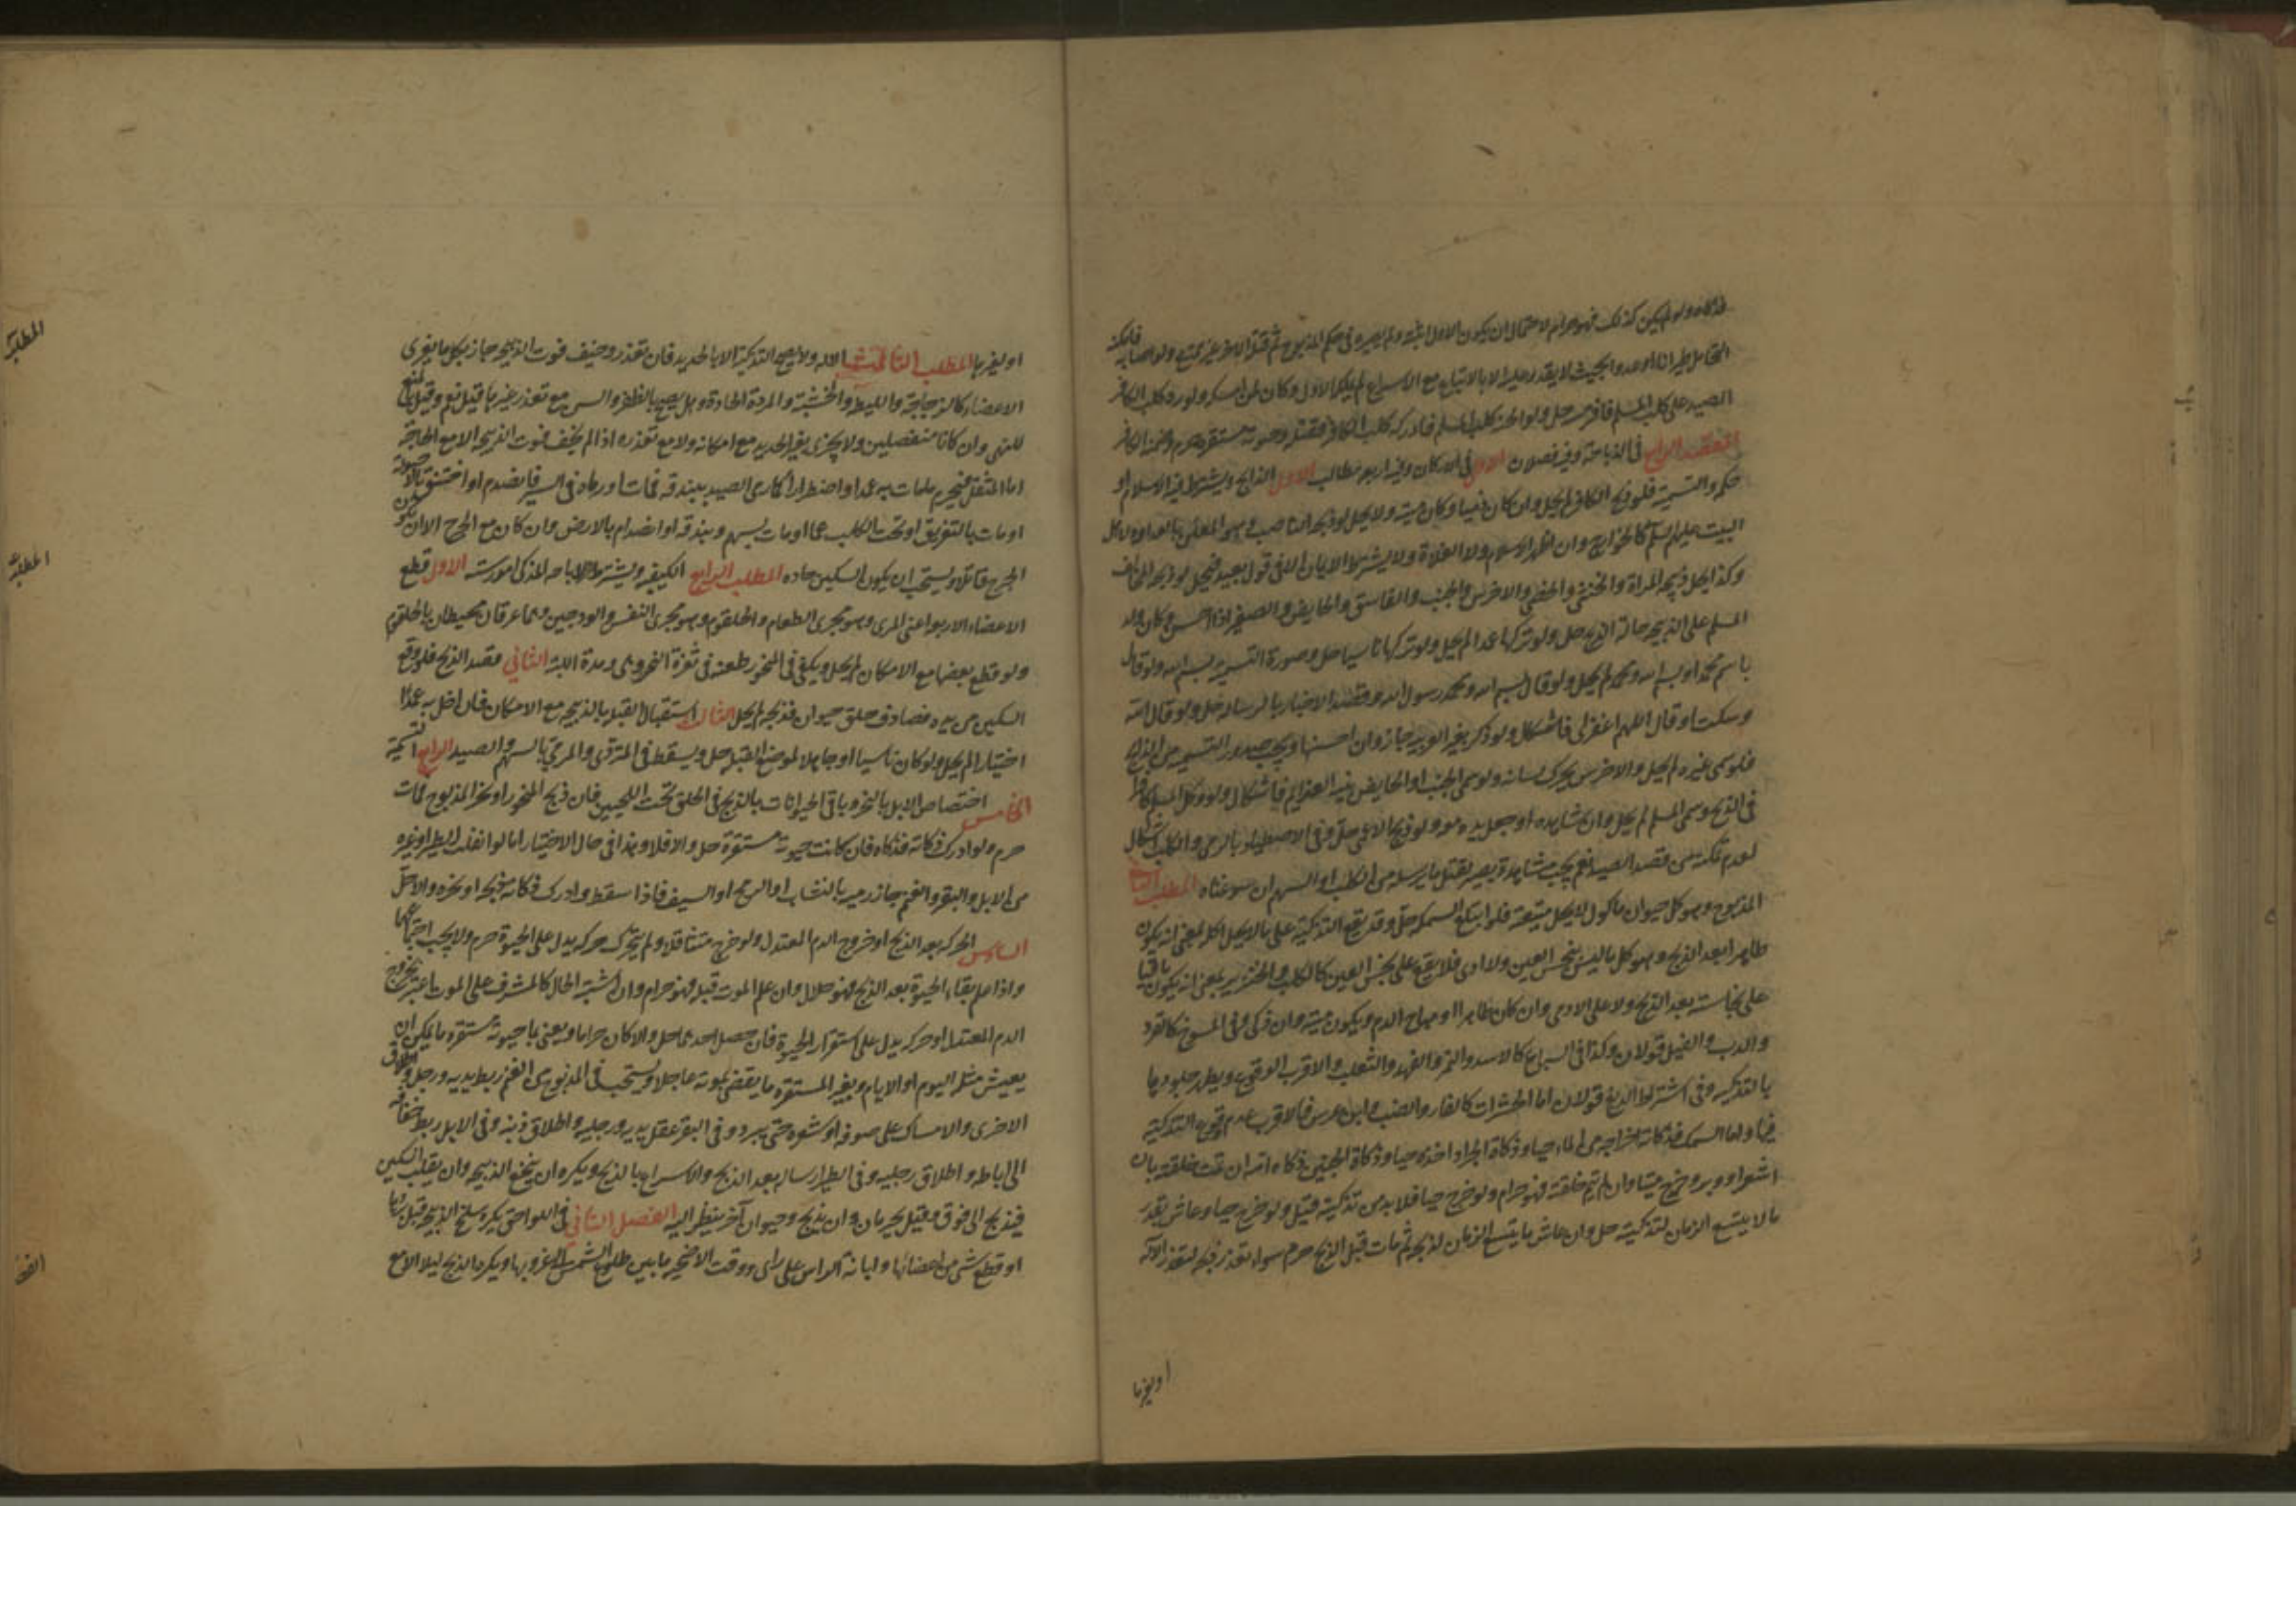 ذكاه ولو لم يكن كذلك فهو حرام لاحتمال ان يكون الاول اثبته ولم يصيره في حكم المذبوح ثم قتله الاخر غير ممتنع ولو اصابه فامكنه
التحامل طيرانا او عدوا بحيث لا يقدر عليه الا بالاتباع مع الاسراع لم يملكه الاول وكان لمن امسكه ولو رد كلب الكافر
الصيد على كلب المسلم فافترسه حل ولو اثخنه كلب المسلم فادركه كلب الكافر فقتله وحيوته مستقره حرم وضمنه الكافر
المقصد الرابع في الذباحة وفيه فصلان الاول في الاركان وفيه اربعة مطالب الاول الذابح ويشترط فيه الاسلام او
حكمه والتسمية فلو ذبح الكافر لم يحل وان كان ذميا وكان ميتة ولا يحل لو ذبحه الناصب وهو المعلن بالعداوة لاهل
البيت عليهم السلم كالخوارج وان اظهر الاسلام ولا الغلاة ولا يشترط الايمان الا في قول بعيد فيحل لو ذبحه المخالف
وكذا يحل ذبيحة المراة والخنثى والخصي والاخرس والجنب والفاسق والحايض والصغير اذا احسن وكان ولد
المسلم على الذبيحة حالة الذبح حل ولو تركها عمدا لم يحل ولو تركها ناسيا حل وصورة التسمية بسم الله ولو قال
باسم محمد او بسم الله ومحمد لم يحل ولو قال بسم الله ومحمد رسول الله وقصد الاخبار بالرسالة حل ولو قال الله
وسكت او قال اللهم اغفر لي فاشكال ولو ذكر بغير العربية جاز وان احسنها ويجب صدور التسمية من الذابح
فلو سمى غيره لم يحل والاخرس يحرك لسانه ولو سمى الجنب او الحايض بنية العزايم فاشكال ولو وكل المسلم كافرا
في الذبح وسمى المسلم لم يحل وان شاهده او جعل يده معه ولو ذبح الاعمى حل وفي الاصطياد بالرمي والكلب اشكال
لعدم تمكنه من قصد الصيد نعم يجب مشاهدة بصير لقتل ما يرسله من الكلب او السهم ان سوغناه المطلب الثاني
المذبوح وهو كل حيوان ماكول لا يحل ميتته فلو ابتلع السمكة حل وقد تقع التذكية على ما لا يحل اكله بمعنى انه يكون
طاهرا بعد الذبح وهو كل ما ليس بنجس العين ولا ادمي فلا يقع على نجس العين كالكلب والخنزير بمعنى انه يكون باقيا
على نجاسته بعد الذبح ولا على الادمي وان كان طاهرا او مباح الدم ويكون ميتة وان ذكي وفي المسوخ كالقرد
والدب والفيل قولان وكذا في السباع كالاسد والنمر والفهد والثعلب والاقرب الوقوع ويطهر جلودها
بالتذكيه وفي اشتراط الدبغ قولان اما الحشرات كالفار والضب وابن عرس فالاقرب عدم وقوع التذكية
فيها واما السمك فذكاته اخراجه من الماء حيا وذكاة الجراد اخذه حيا وذكاة الجنين ذكاه امه ان تمت خلقته بان
اشعر او وبر وخرج ميتا وان لم تتم خلقته فهو حرام ولو خرج حيا فلا بد من تذكيته وقيل ولو خرج حيا وعاش بقدر
ما لا يتسع الزمان لتذكيته حل وان عاش ما يتسع الزمان لذبحه ثم مات قبل الذبح حرم سواء تعذر ذبحه لتعذر الالة
او لغيرها
او لغيرها المطلب الثالث الاله ولا يصح التذكية الا بالحديد فان تعذر وخيف فوت الذبيحه جاز بكل ما يفري
الاعضاء كالزجاجة والليطه والخشبة والمروة الحادة وهل يصح بالظفر والسن مع تعذر غيرها قيل نعم وقيل بالمنع
للنهي وان كانا منفصلين ولا يجزي بغير الحديد مع امكانه ولا مع تعذره اذا لم يخف فوت الذبيحه الا مع الحاجة
اما المثقل فيحرم ما مات به عمدا او اضطرارا كما رمى الصيد ببندقة فمات او رماه في السير فانصدم او اختنق بالاحبولة
او مات بالتفريق او تحت الكلب غما او مات بسهم وبندقه او انصدام بالارض وان كان مع الجرح الا ان يكون
الجرح قاتلا ويستحب ان يكون السكين حاده المطلب الرابع الكيفيه ويشترط لاباحه المذكى امور سته الاول قطع
الاعضاء الاربعه اعني المري وهو مجرى الطعام والحلقوم وهو مجرى النفس والودجين وهما عرقان محيطان بالحلقوم
ولو قطع بعضها مع الامكان لم يحل ويكفي في المنحور طعنه في ثغرة النحر وهي وهدة اللبة الثاني قصد الذبح فلو وقع
السكين من يده فصادف حلق حيوان فذبحه لم يحل الثالث استقبال القبلة بالذبيحه مع الامكان فان اخل به عمدا
اختيارا لم يحل ولو كان ناسيا او جاهلا لموضع القبله حل ويسقط في المتردي والمرمي بالسهم والصيد الرابع التسمية
الخامس اختصاص الابل بالنحر وباقي الحيوانات بالذبح في الحلق تحت اللحيين فان ذبح المنحور او نحر المذبوح فمات
حرم ولو ادرك ذكاته فذكاه فان كانت حيوته مستقرة حل والا فلا وهذا في حال الاختيار اما لو انفلت الطير او غيره
من الابل والبقر والغنم جاز رميه بالنشاب او الرمح او السيف فاذا سقط وادرك ذكاته ذبحه او نحره والا حل
السادس الحركه بعد الذبح او خروج الدم المعتدل ولو خرج متثاقلا ولم يتحرك حركه يدل على الحيوة حرم ولا يجب اجتماعهما
واذا علم بقاء الحيوة بعد الذبح فهو حلال وان علم الموت قبله فهو حرام وان اشتبه الحال كالمشرف على الموت اعتبر بخروج
الدم المعتدل او حركه يدل على استقرار الحيوة فان حصل احدهما حل والا كان حراما ويعني بما حيوته مستقره ما يمكن ان
يعيش مثله اليوم او الايام وبغير المستقره ما يقضى بموته عاجلا ويستحب في المذبوح من الغنم ربط يديه ورجله واطلاق
الاخرى والامساك على صوفه او شعره حتى يبرد وفي البقر عقل يديه ورجليه واطلاق ذنبه وفي الابل ربط خفافه
الى اباطه واطلاق رجليه وفي الطير ارساله بعد الذبح والاسراع بالذبح ويكره ان ينخع الذبيحه وان يقلب السكين
فيذبح الى فوق وقيل يحرمان وان يذبح وحيوان آخر ينظر اليه الفصل الثاني في اللواحق يكره سلخ الذبيحه قبل بردها
او قطع شيء من اعضائها وابانة الراس على راى ووقت الاضحيه ما بين طلوع الشمس الى غروبها ويكره الذبح ليلا الا مع
المطلب
المطلب